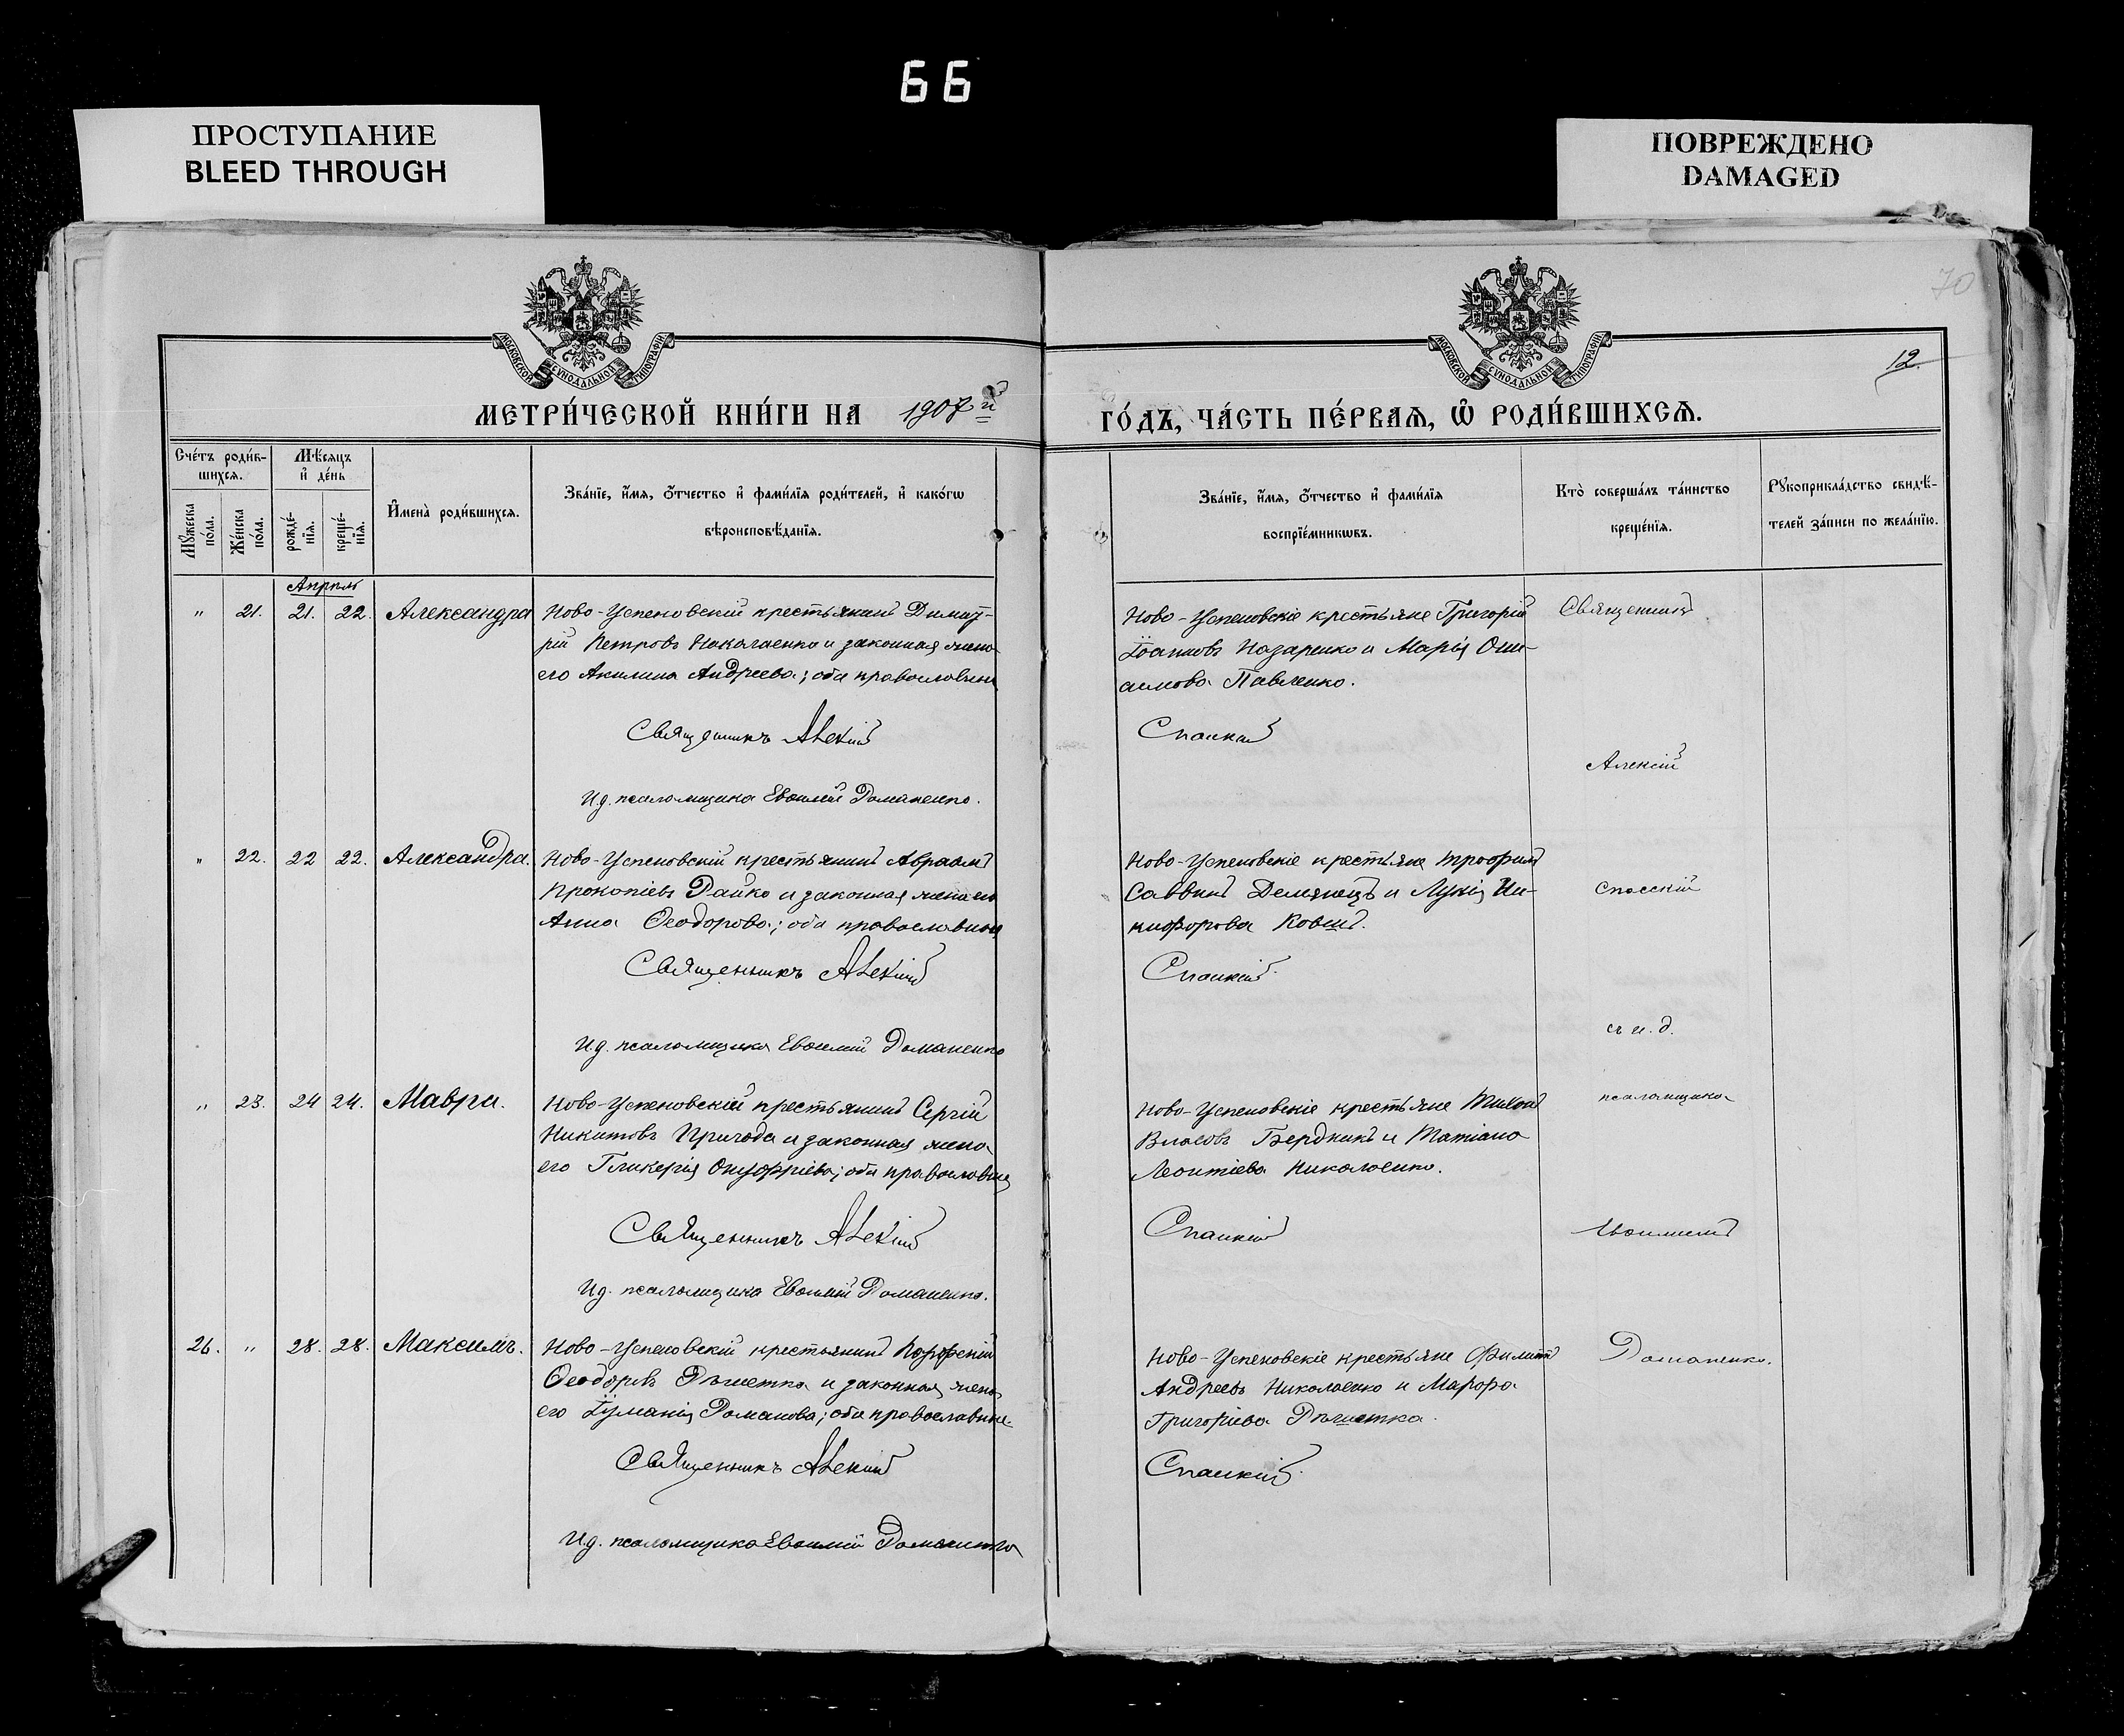 66
ПРОСТУПАНИЕ
BLEED THROUGH
ПОВРЕЖДЕНО
DAMAGED
70
12.
МОСКОВСКОЙ СѴНОДАЛЬНОЙ ТИПОГРАФІИ
МОСКОВСКОЙ СѴНОДАЛЬНОЙ ТИПОГРАФІИ
МЕТРИ́ЧЕСКОЙ КНИ́ГИ НА 1907й
ГО́ДЪ, ЧА́СТЬ ПЕ́РВАЯ, Ѽ РОДИ́ВШИХСѦ.
Сче́тъ роди́в-
шихсѧ.
Мѣ́сѧцъ
и҆ де́нь
Мꙋ́жеска
по́ла.
Же́нска
по́ла.
рожде́-
нїѧ.
креще́-
нїѧ.
И҆мена̀ роди́вшихсѧ.
Зва́нїе, и҆́мѧ, ѻ҆́тчество и҆ фами́лїѧ роди́телей, и҆ како́гѡ
вѣроисповѣ́данїѧ.
Зва́нїе, и҆́мѧ, ѻ҆́тчество и҆ фами́лїѧ
воспрїе́мникѡвъ.
Кто̀ соверша́лъ та́инство
креще́нїѧ.
Рꙋкоприкла́дство свидѣ́-
телей за́писи по жела́нїю.
Апрѣль
" 21. 21. 22. Александра Ново-Успеновскій крестьянинъ Димит-
рій Петровъ Николаенко и законная жена
его Акилина Андреева; оба православные
Священникъ Алексій
И.д. псаломщика Евѳимій Романенко.
Ново-Успеновскіе крестьяне Григорій
Іоанновъ Назаренко и Марія Они-
симова Павленко.
Спасскій
" 22. 22 22. Александра. Ново-Успеновскій крестьянинъ Авраамъ
Прокопіевъ Райко и законная жена его
Анна Ѳеодорова; оба православные
Священникъ Алексій
И.д. псаломщика Евѳимій Романенко
Ново-Успеновскіе крестьяне Трофимъ
Саввинъ Демянецъ и Лукія Ни-
кифорова Ковшъ.
Спасскій
" 23. 24 24. Мавра. Ново-Успеновскій крестьянинъ Сергій
Никитовъ Природа и законная жена
его Гликерія Онуфріева; оба православные
Священникъ Алексій
И.д. псаломщика Евѳимій Романенко.
Ново-Успеновскіе крестьяне Тихонъ
Власовъ Бердникъ и Татіана
Леонтіева Николаенко.
Спасскій
26. " 28. 28. Максимъ. Ново-Успеновскій крестьянинъ Парфеній
Ѳеодоровъ Рѣшетка и законная жена
его Іуліанія Романова; оба православные.
Священникъ Алексій
И.д. псаломщика Евѳимій Романенко
Ново-Успеновскіе крестьяне Филиппъ
Андреевъ Николаенко и Марфа
Григоріева Рѣшетка.
Спасскій
Священникъ
Алексій
Спасскій
съ и.д.
псаломщика
Евѳиміемъ
Романенко.